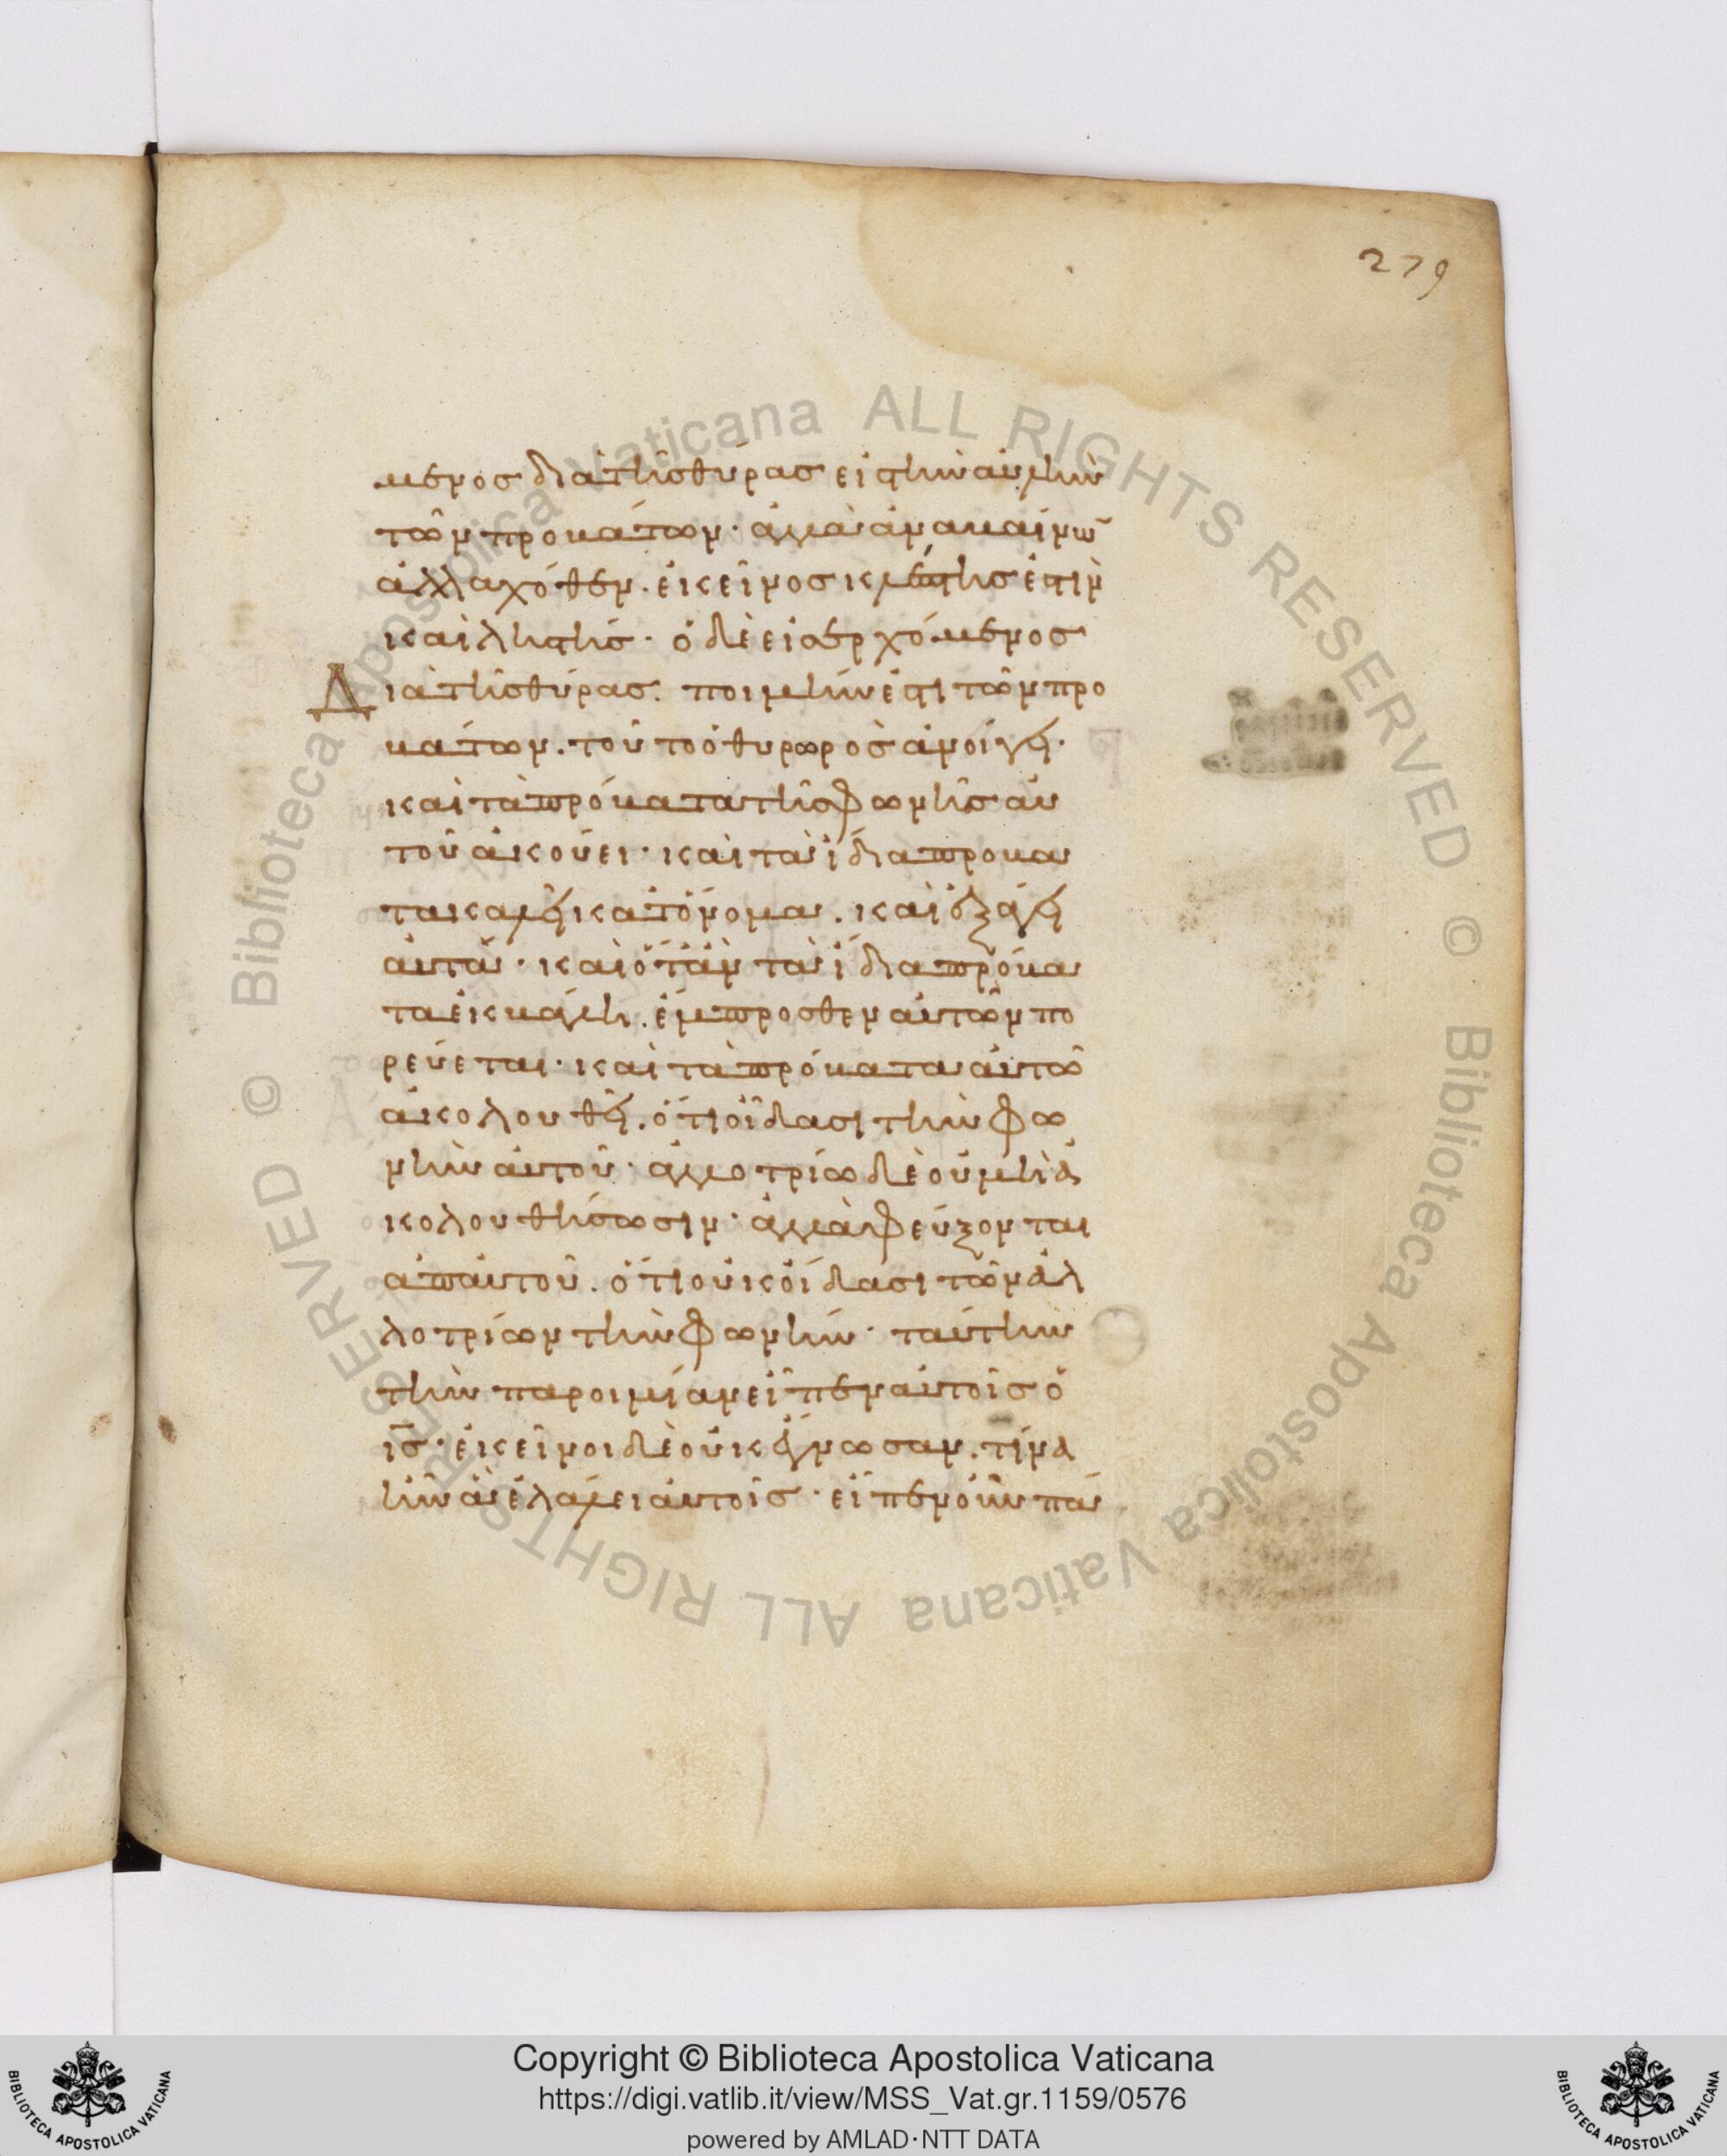 279
μενος διὰ τῆς θύρας εἰς τὴν αὐλὴν
τῶν προβάτων· ἀλλὰ ἀναβαίνω̄
ἀλλαχόθεν. ἐκεῖνος κλέπτης ἐστὶν
καὶ ληστής· ὁ δὲ εἰσερχόμενος
Διὰ τῆς θύρας. ποιμήν ἐστι τῶν προ
βάτων. τοῦτο ὁ θυρωρὸς ἀνοίγει·
καὶ τὰ πρόβατα τῆς φωνῆς αὐ
τοῦ ἀκούει· καὶ τὰ ἴδια προβα
τα καλεῖ κατ' ὄνομα. καὶ ἐξάγει
αὐτά· καὶ ὅταν τὰ ἴδια πρόβα
τα ἐκβάλῃ. ἔμπροσθεν αὐτῶν πο
ρεύεται· καὶ τὰ πρόβατα αὐτῶ
ἀκολουθεῖ. ὅτι οἴδασι τὴν φω
νὴν αὐτοῦ· ἀλλοτρίω δὲ οὐ μὴ ἀ
κολουθήσωσιν· ἀλλὰ φεύξονται
ἀπ' αὐτοῦ. ὅτι οὐκ οἴδασι τῶν ἀλ
λοτρίων τὴν φωνήν· ταύτην
τὴν παροιμίαν εἶπεν αὐτοῖς ὁ
ις̄· ἐκεῖνοι δὲ οὐκ ἔγνωσαν. τίνα
ἦν ἃ ἐλάλει αὐτοῖς· εἶπεν οὖν πά
Biblioteca Apostolica Vaticana ALL RIGHTS RESERVED ©
Biblioteca Apostolica Vaticana ALL RIGHTS RESERVED ©
Copyright © Biblioteca Apostolica Vaticana
https://digi.vatlib.it/view/MSS_Vat.gr.1159/0576
powered by AMLAD·NTT DATA
BIBLIOTECA APOSTOLICA VATICANA
BIBLIOTECA APOSTOLICA VATICANA